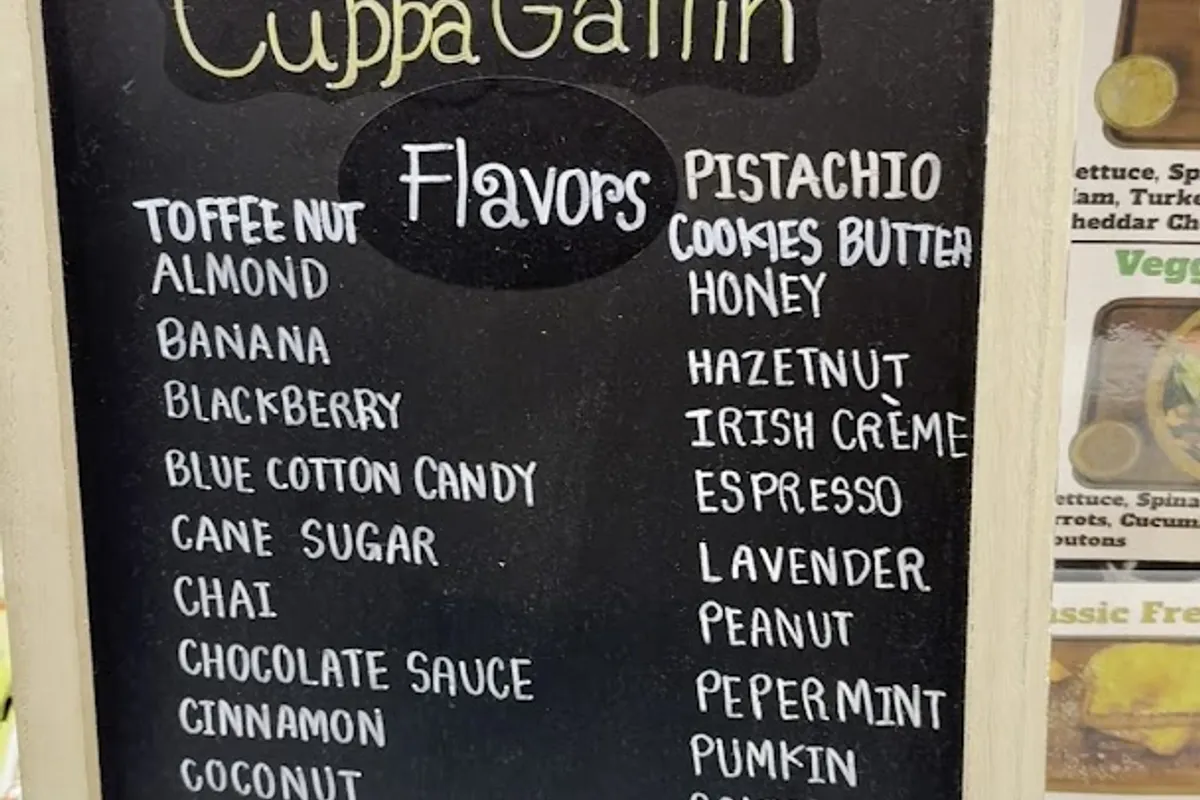 Cuppa Gaffin
Flavors
TOFFEE NUT
ALMOND
BANANA
BLACKBERRY
BLUE COTTON CANDY
CANE SUGAR
CHAI
CHOCOLATE SAUCE
CINNAMON
COCONUT
PISTACHIO
COOKIES BUTTER
HONEY
HAZETNUT
IRISH CRÈME
ESPRESSO
LAVENDER
PEANUT
PEPERMINT
PUMKIN
ettuce, Sp
am, Turk
heddar Ch
Vegg
ettuce, Spina
rrots, Cucum
outons
assic Fre